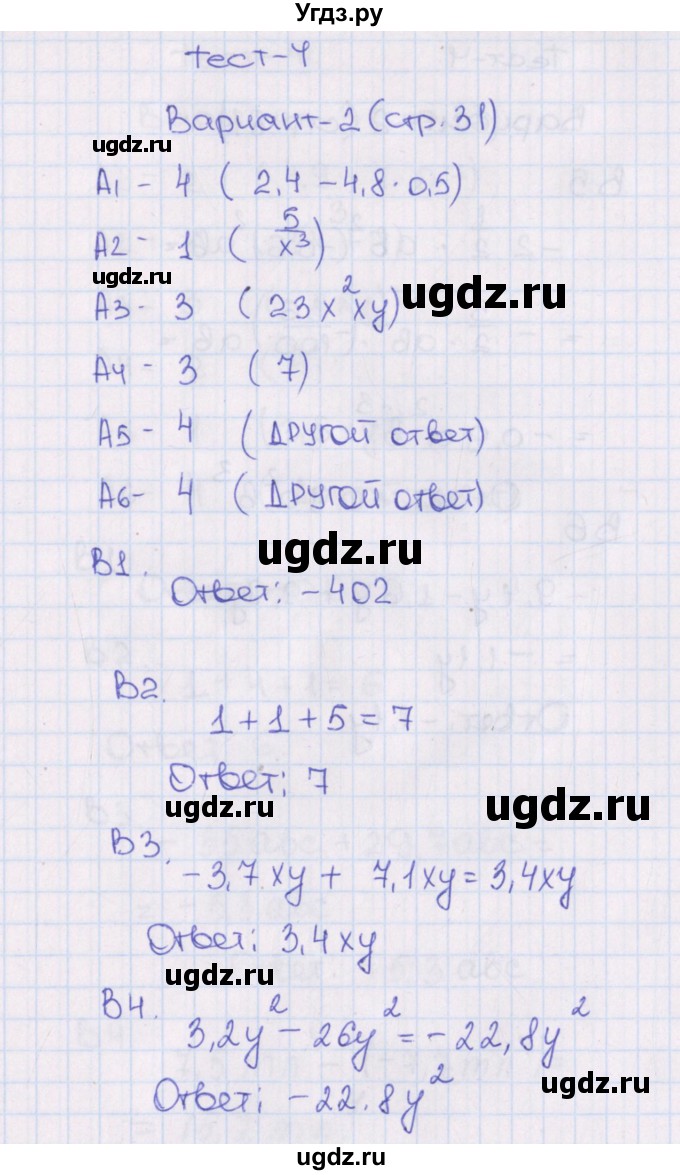 Угдз.ру
тест-4
Вариант-2 (стр.31)
ugdz.ru
А1 - 4 ( 2,4 - 4,8 · 0,5)
А2 - 1 ( 5/x³ )
ugdz.ru
ugdz.ru
А3 - 3 ( 23x²xy)
А4 - 3 ( 7)
А5 - 4 ( другой ответ)
А6 - 4 ( другой ответ)
ugdz.ru
В1.
Ответ: -402
В2.
1 + 1 + 5 = 7
Ответ: 7
ugdz.ru
ugdz.ru
В3.
-3,7xy + 7,1xy = 3,4xy
Ответ: 3,4xy
ugdz.ru
В4.
3,2y² - 26y² = -22,8y²
ugdz.ru
Ответ: -22.8y²
ugdz.ru